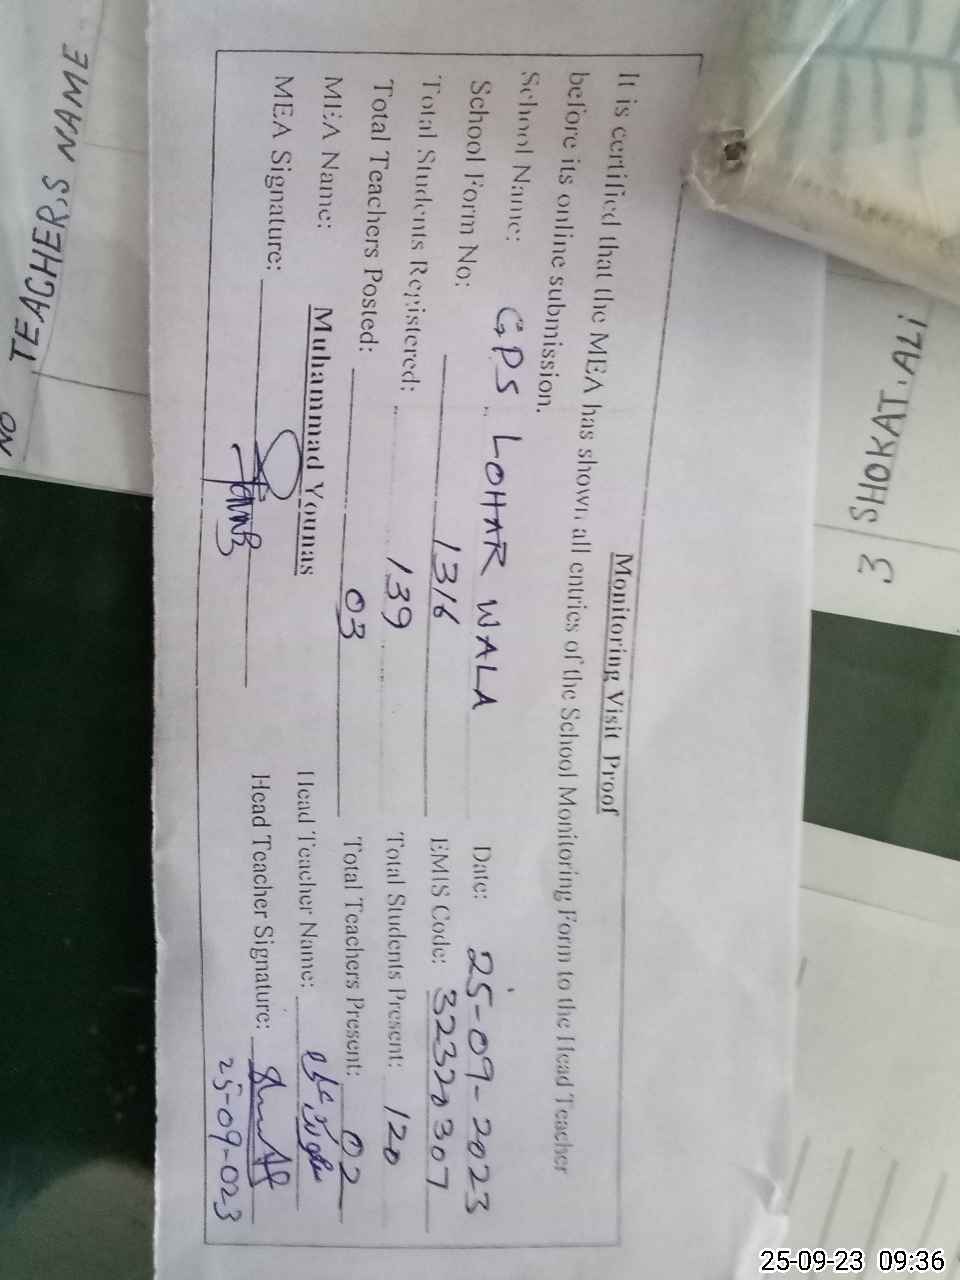 Monitoring Visit Proof
It is certified that the MEA has shown all entries of the School Monitoring Form to the Head Teacher
before its online submission.
School Name: GPS LOHAR WALA Date: 25-09-2023
School Form No: 1316 EMIS Code: 32320307
Total Students Registered: 139 Total Students Present: 120
Total Teachers Posted: 03 Total Teachers Present: 02
MEA Name: Muhammad Younas Head Teacher Name:
MEA Signature: Head Teacher Signature:
25-09-023
TEACHER,S NAME
NO
3 SHOKAT.ALI
25-09-23 09:36